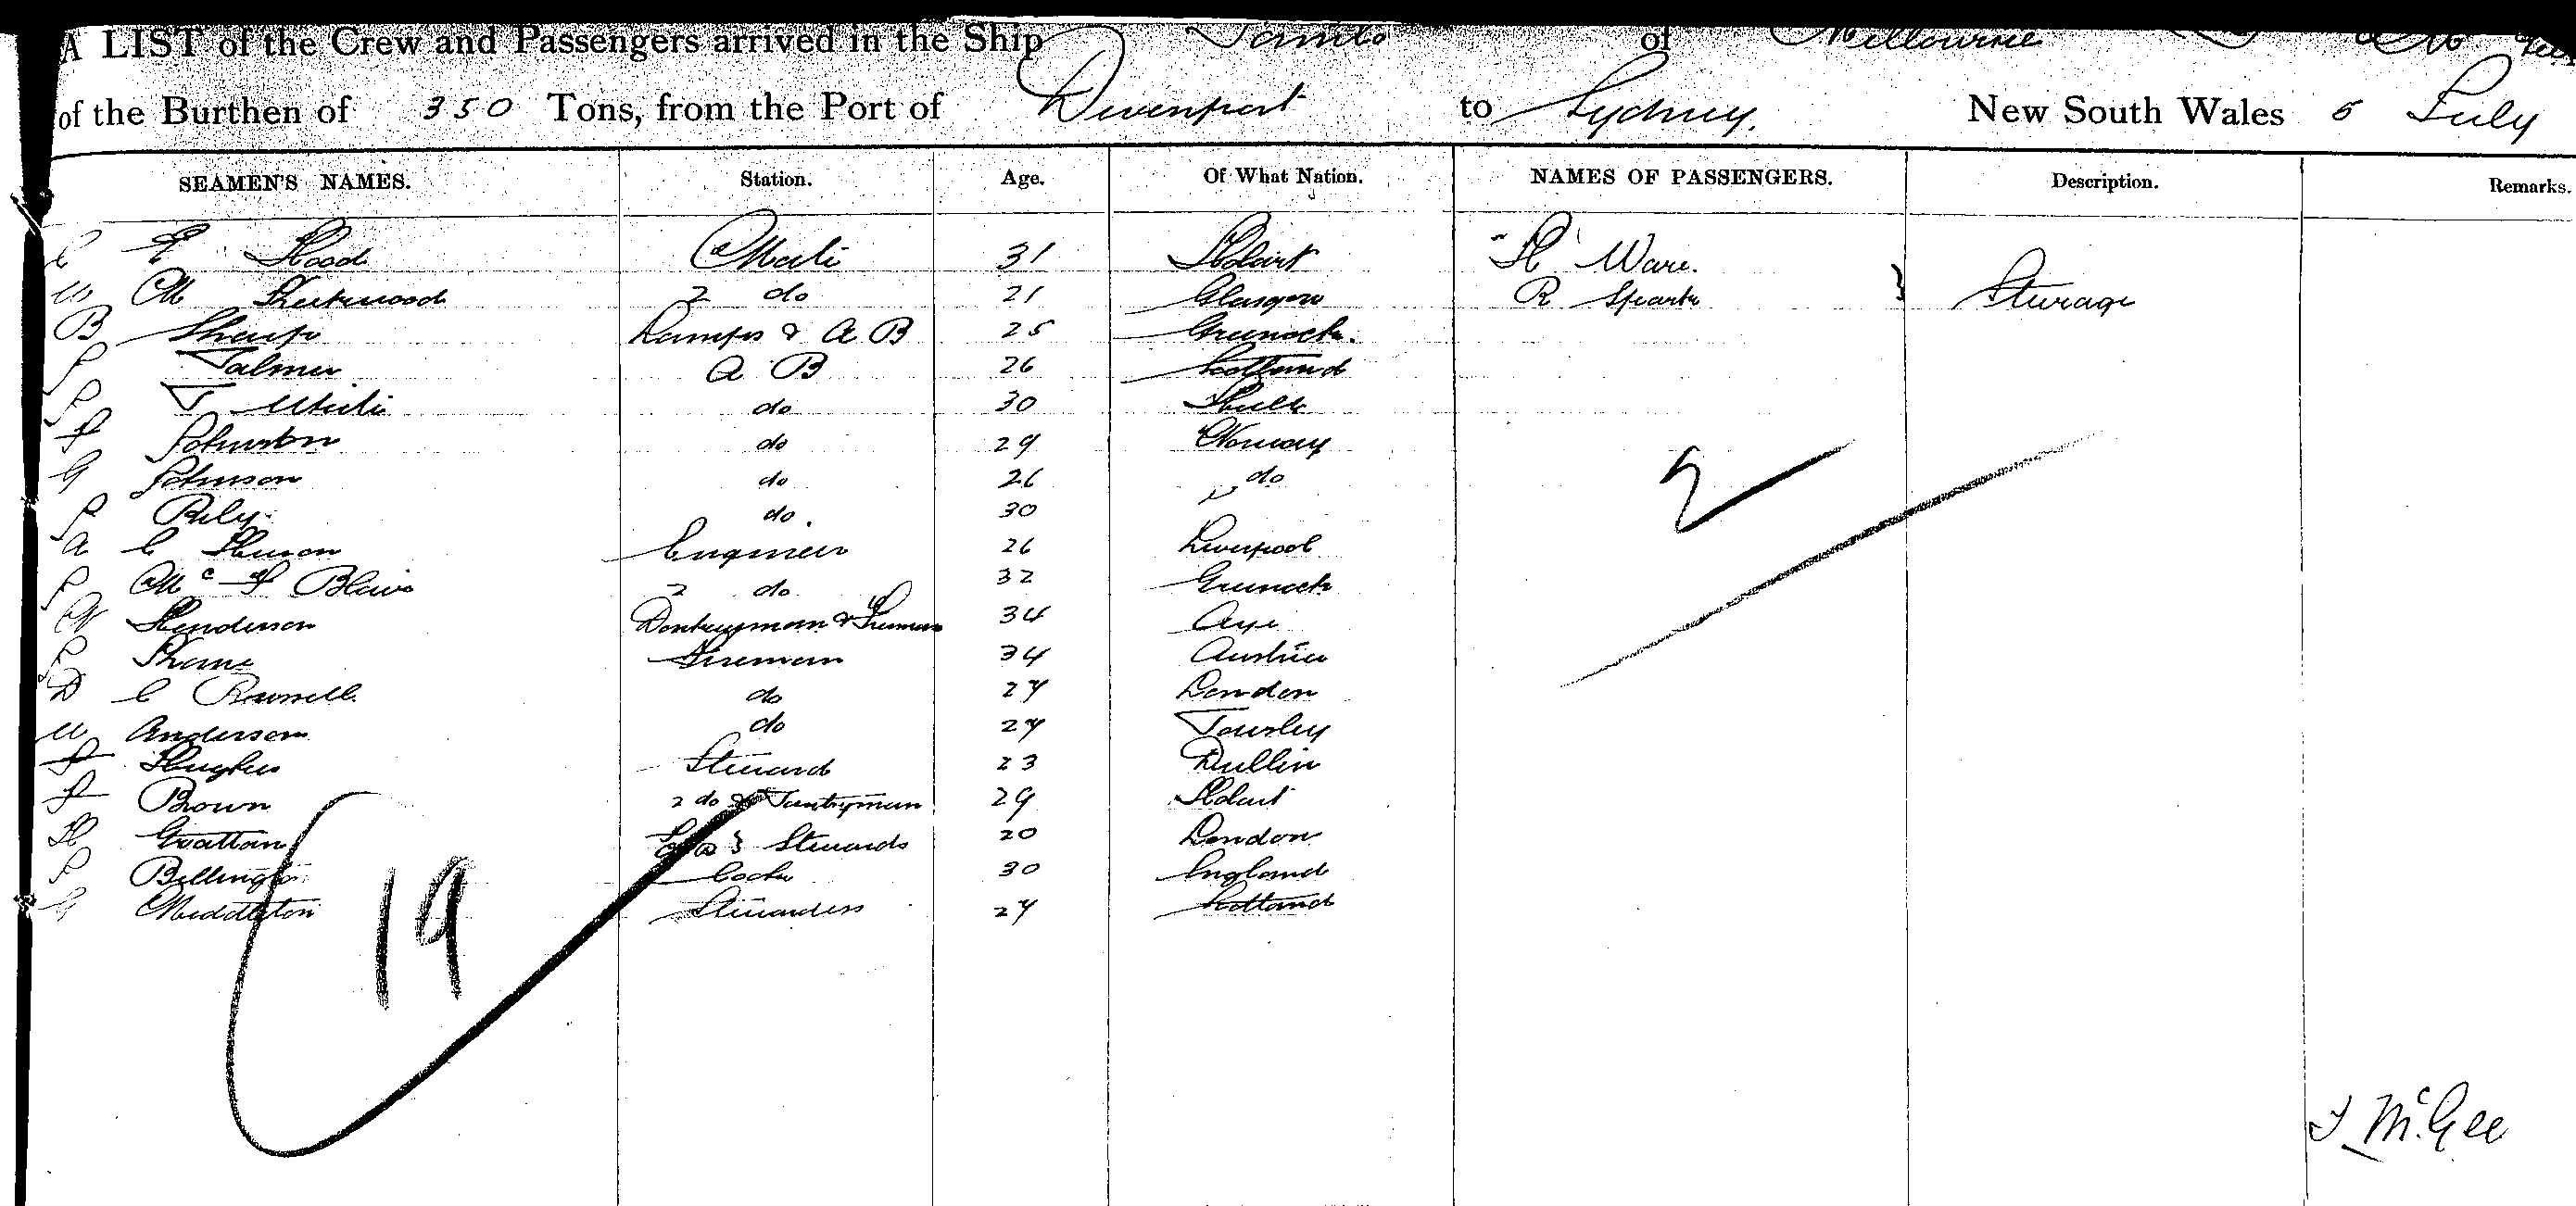 A LIST of the Crew and Passengers arrived in the Ship Tambo of Melbourne
of the Burthen of 350 Tons, from the Port of Devenport to Sydney. New South Wales 5 July
SEAMEN'S NAMES. Station. Age. Of What Nation. NAMES OF PASSENGERS. Description. Remarks.
C E Hood Mate 31 Hobart H Ware.
W M 2 do 21 Glasgow R } Sturage
B Sharp Lamps & A B 25 Greenock.
J A B 26 Scotland
J T White do 30 Hull
J Johnston do 29 Norway
G Johnson do 26 do
J Rily do. 30
A C Engineer 26 Liverpool
J Mc Blair 2 do 32 Greenock 2
N Henderson Donkeyman & Fireman 34 Ayr
J Fireman 34 Austria
D C Russell do 27 London
W Anderson do 27
J Hughes Steward 23 Dublin
J Brown 2 do & Pantryman 29 Hobart
H Grattan Stewards 20 London
J Cook 30 England
G Middleton Stewardess 27 Scotland
19
J McGee